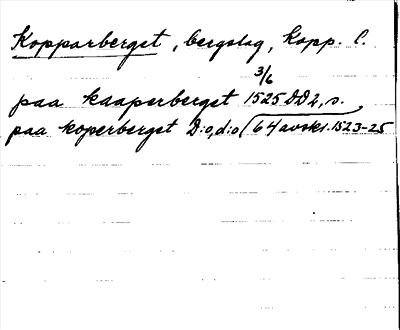 Kopparberget, bergslag, Kopp. l.
3/6
paa kaaperberget 1525 DD2, s.
paa koperberget D:o, d:o (64 avskr. 1523-25